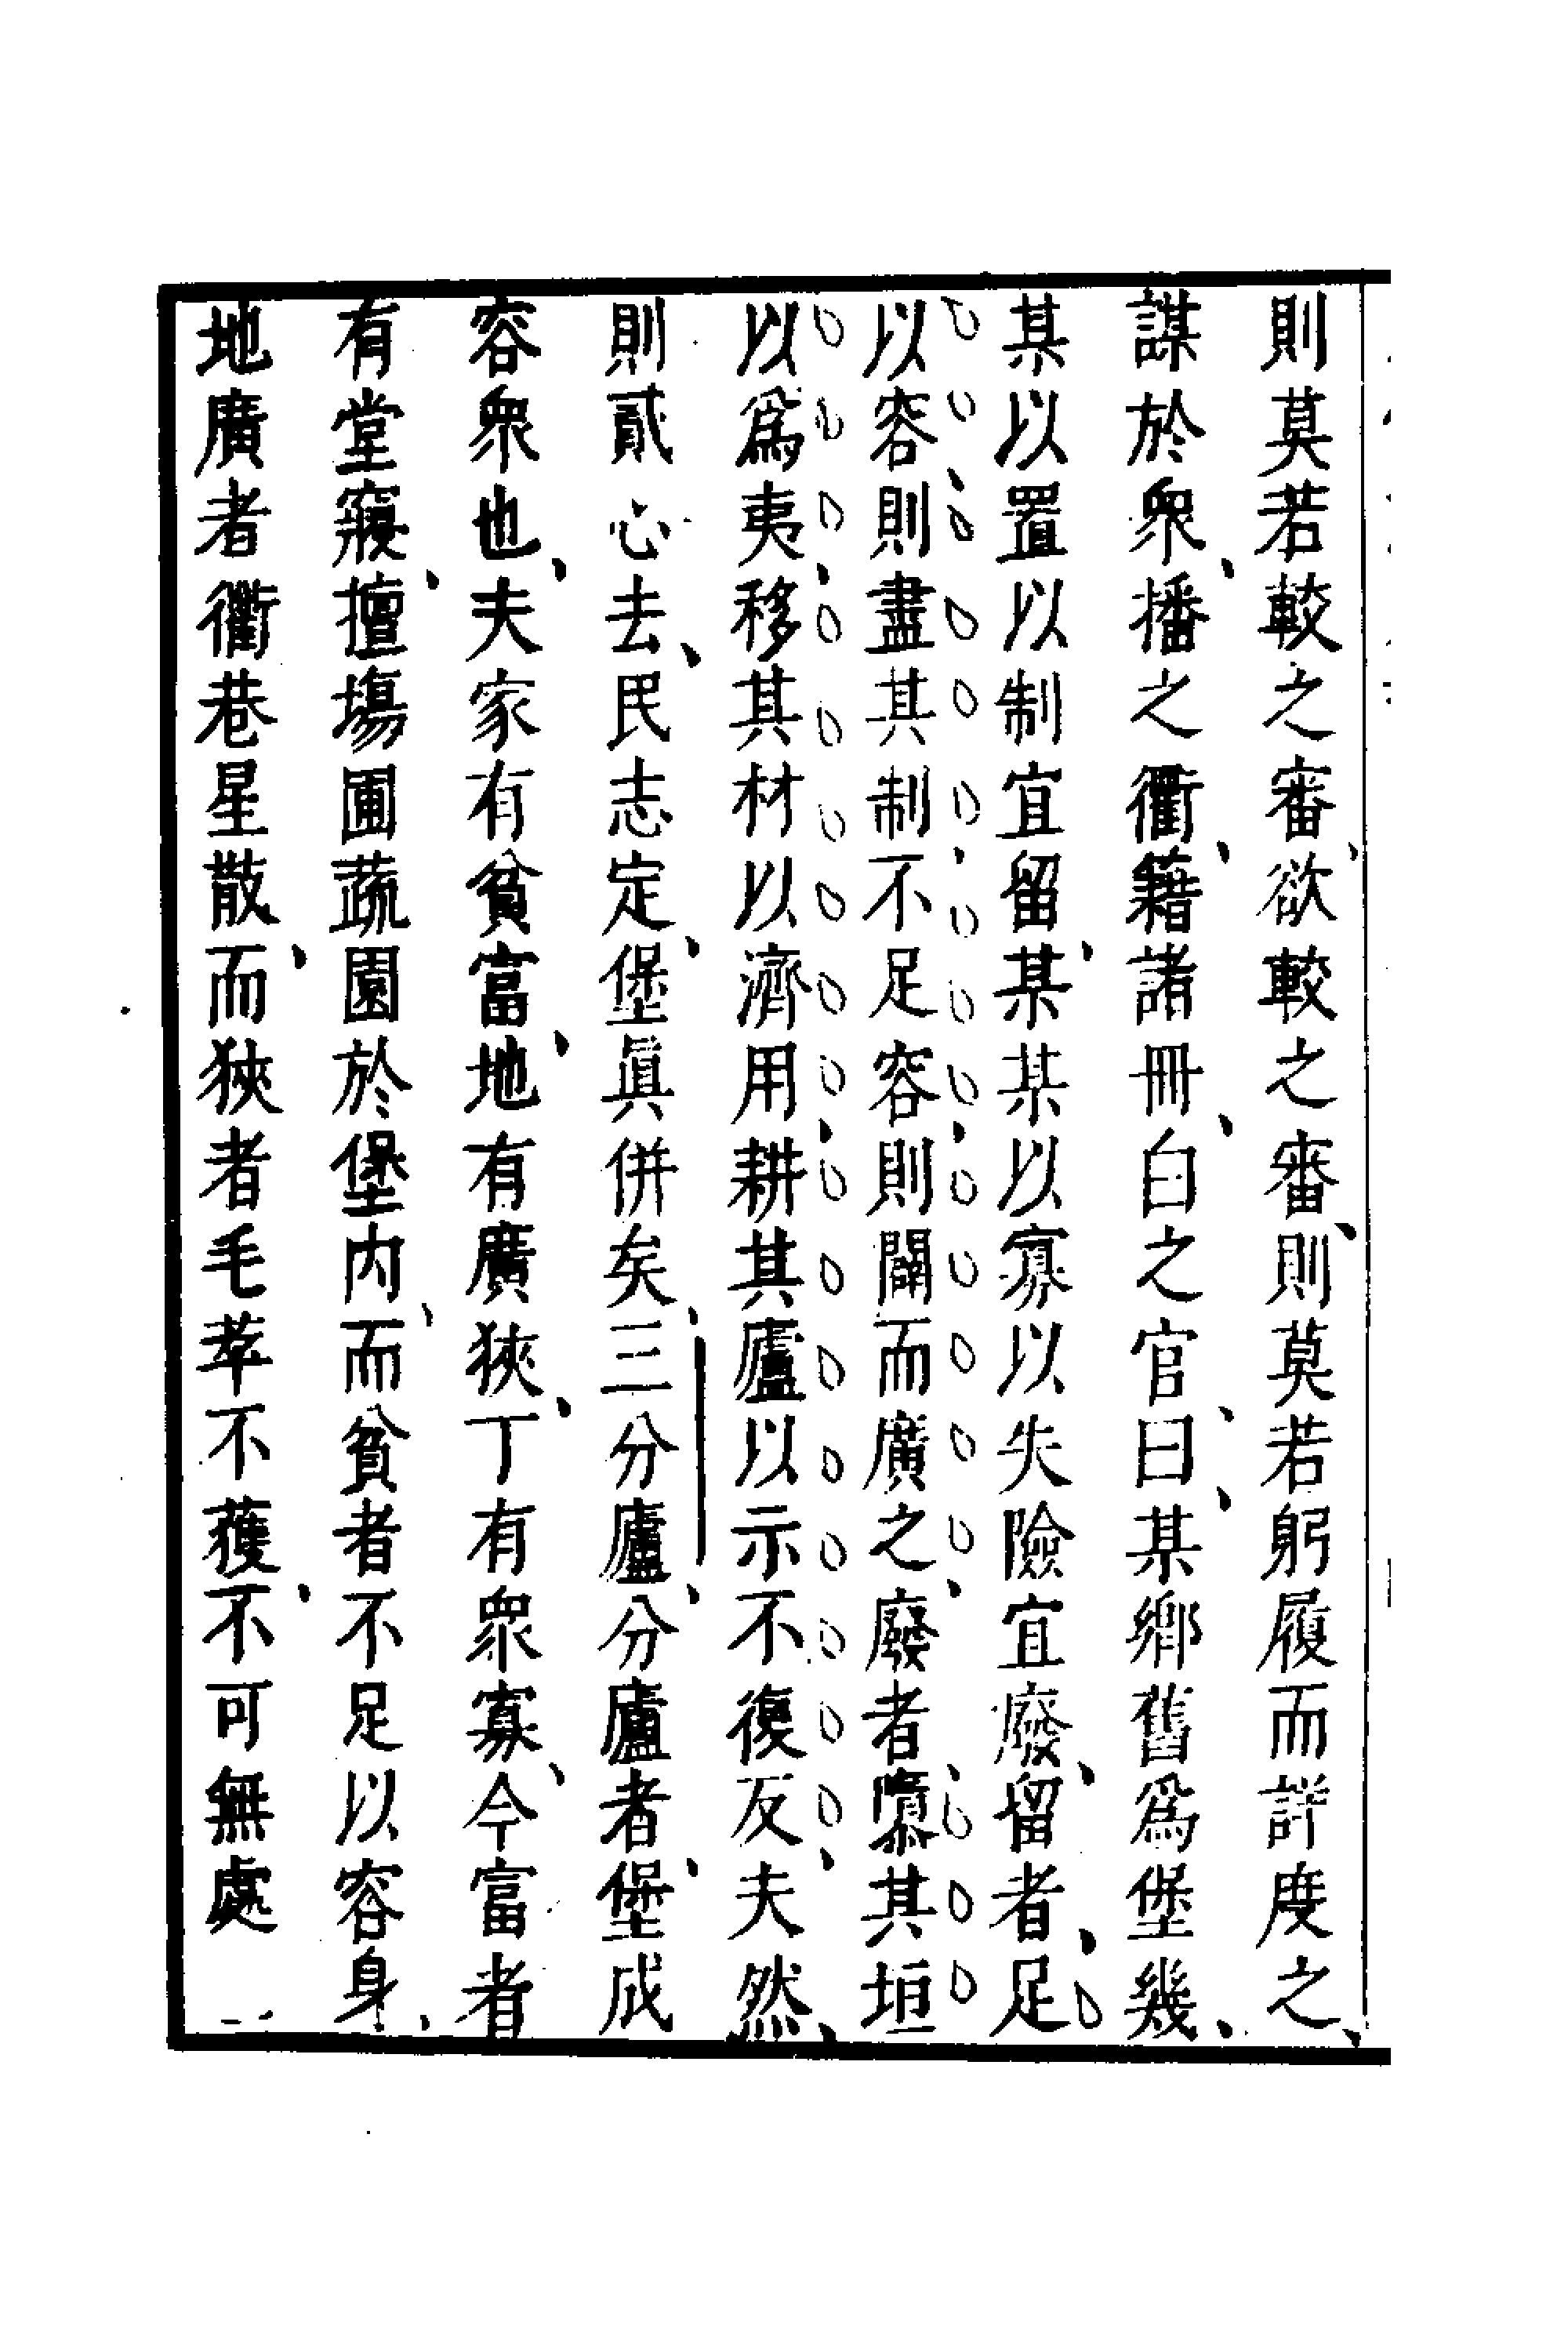 則莫若較之審欲較之審則莫若躬履而詳度之
謀於衆播之衢籍諸冊白之官曰某鄉舊爲堡幾
某以置以制宜留某某以寡以失險宜廢留者足
以容則盡其制不足容則闢而廣之廢者隳其垣
以爲夷移其材以濟用耕其廬以示不復反夫然
則貳心去民志定堡眞併矣三分廬分廬者堡成
容衆也夫家有貧富地有廣狹丁有衆寡今富者
有堂寢擅場圃蔬園於堡內而貧者不足以容身
地廣者衢巷星散而狹者毛萃不獲不可無處